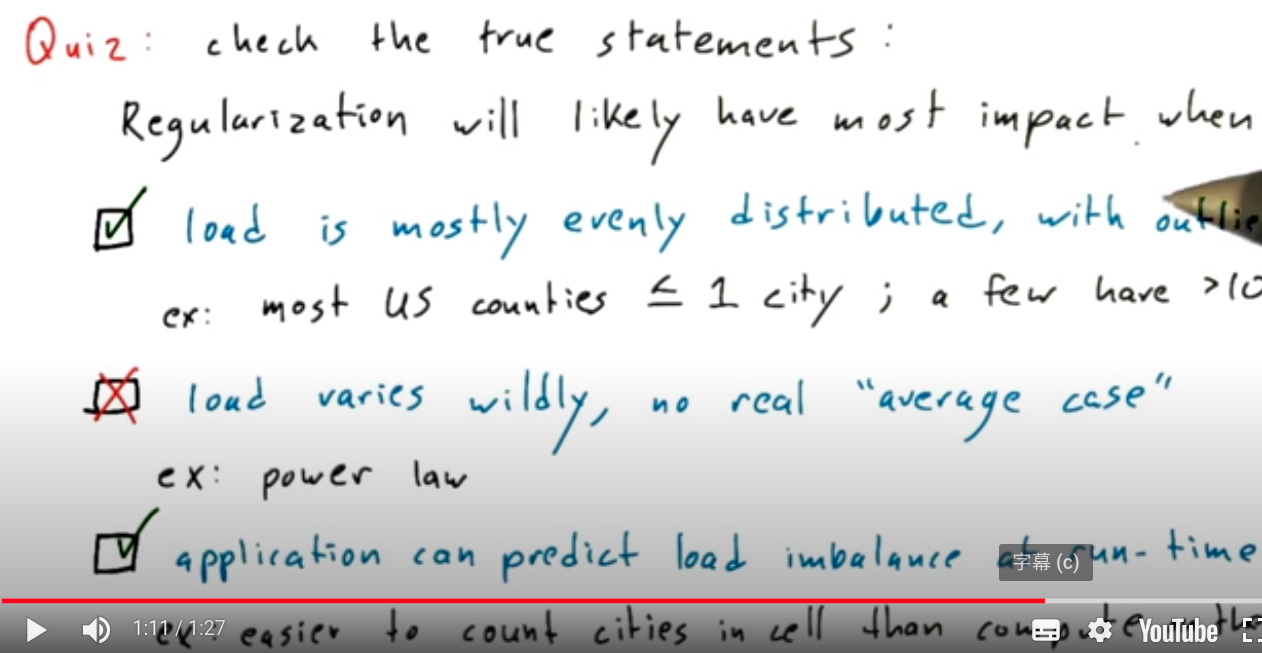 Quiz: check the true statements:
Regularization will likely have most impact when
load is mostly evenly distributed, with
ex: most US counties ≤ 1 city; a few have >10
load varies wildly, no real "average case"
ex: power law
application can predict load imbalance at run-time
字幕 (c)
ex: easier to count cities in cell than
1:11 / 1:27
YouTube